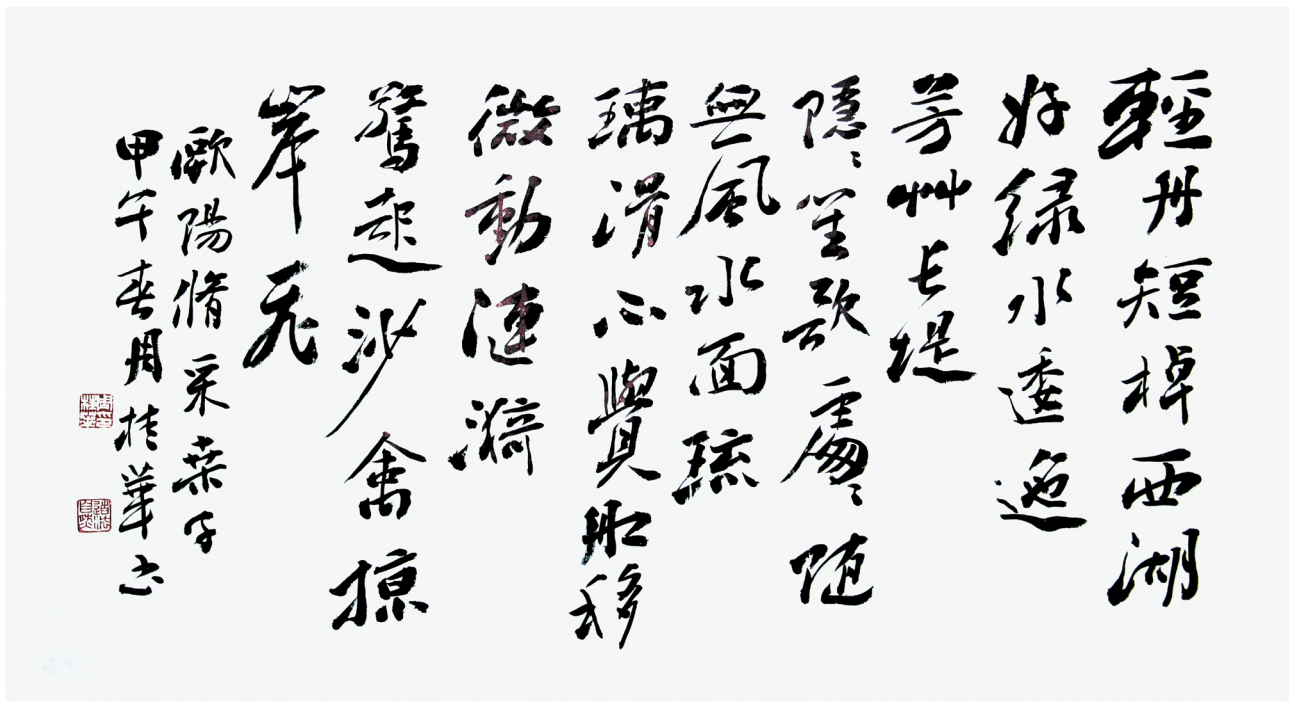 輕舟短棹西湖
好绿水逶迤
芳艸長堤
隱〻笙歌處〻随
無風水面琉
璃滑不覺船移
微動漣漪
驚起沙禽掠
岸飛
歐陽脩采桑子
甲午春周桂華书